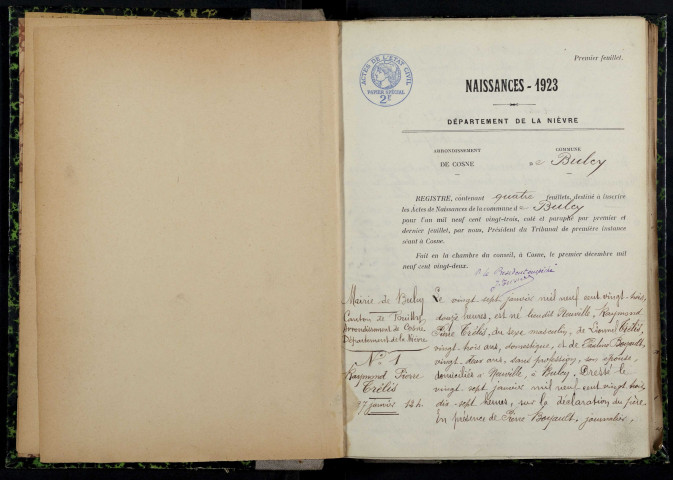 Premier feuillet.
ACTES DE L'ÉTAT CIVIL
PAPIER SPÉCIAL
2F
NAISSANCES - 1923
DÉPARTEMENT DE LA NIÈVRE
ARRONDISSEMENT
DE COSNE
COMMUNE
de Bulcy
REGISTRE, contenant quatre feuillets, destiné à inscrire
les Actes de Naissances de la commune de Bulcy
pour l'an mil neuf cent vingt-trois, coté et paraphé par premier et
dernier feuillet, par nous, Président du Tribunal de première instance
séant à Cosne.
Fait en la chambre du conseil, à Cosne, le premier décembre mil
neuf cent vingt-deux.
Mairie de Bulcy
Canton de Pouilly
Arrondissement de Cosne
Département de la Nièvre
N° 1
Raymond Pierre
Trélis
27 janvier 12 h.
Le vingt-sept janvier mil neuf cent vingt-trois,
douze heures, est né lieudit Neuville, Raymond
Pierre Trélis, du sexe masculin, de Trélis,
vingt-trois ans, domestique, et de Boyault,
vingt-deux ans, sans profession, son épouse,
domiciliés à Neuville, à Bulcy. Dressé le
vingt-sept janvier mil neuf cent vingt-trois,
dix-sept heures, sur la déclaration du père.
En présence de Pierre Boyault, journalier,